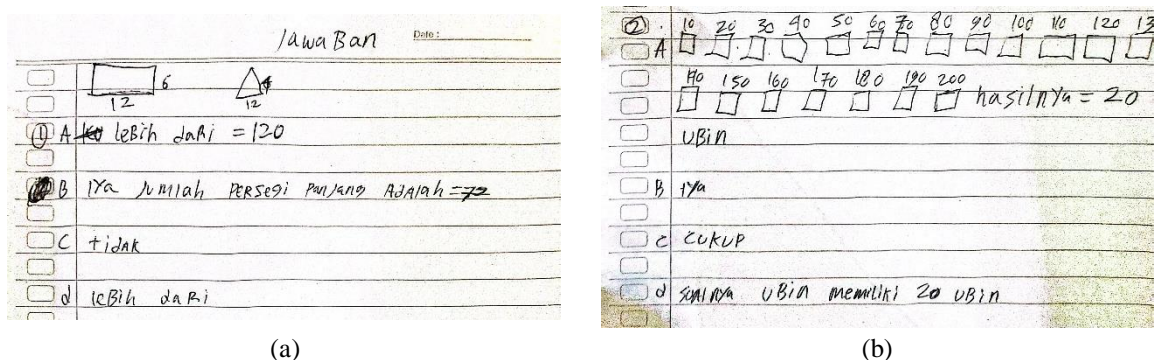 Jawaban Date :
6
12
4
12
① A lebih dari = 120
B iya jumlah persegi panjang adalah = 72
C tidak
d lebih dari
(a)
② . 10 20 30 40 50 60 70 80 90 100 110 120 13
A
140 150 160 170 180 190 200
hasilnya = 20
ubin
B iya
c cukup
d ubin memiliki 20 ubin
(b)